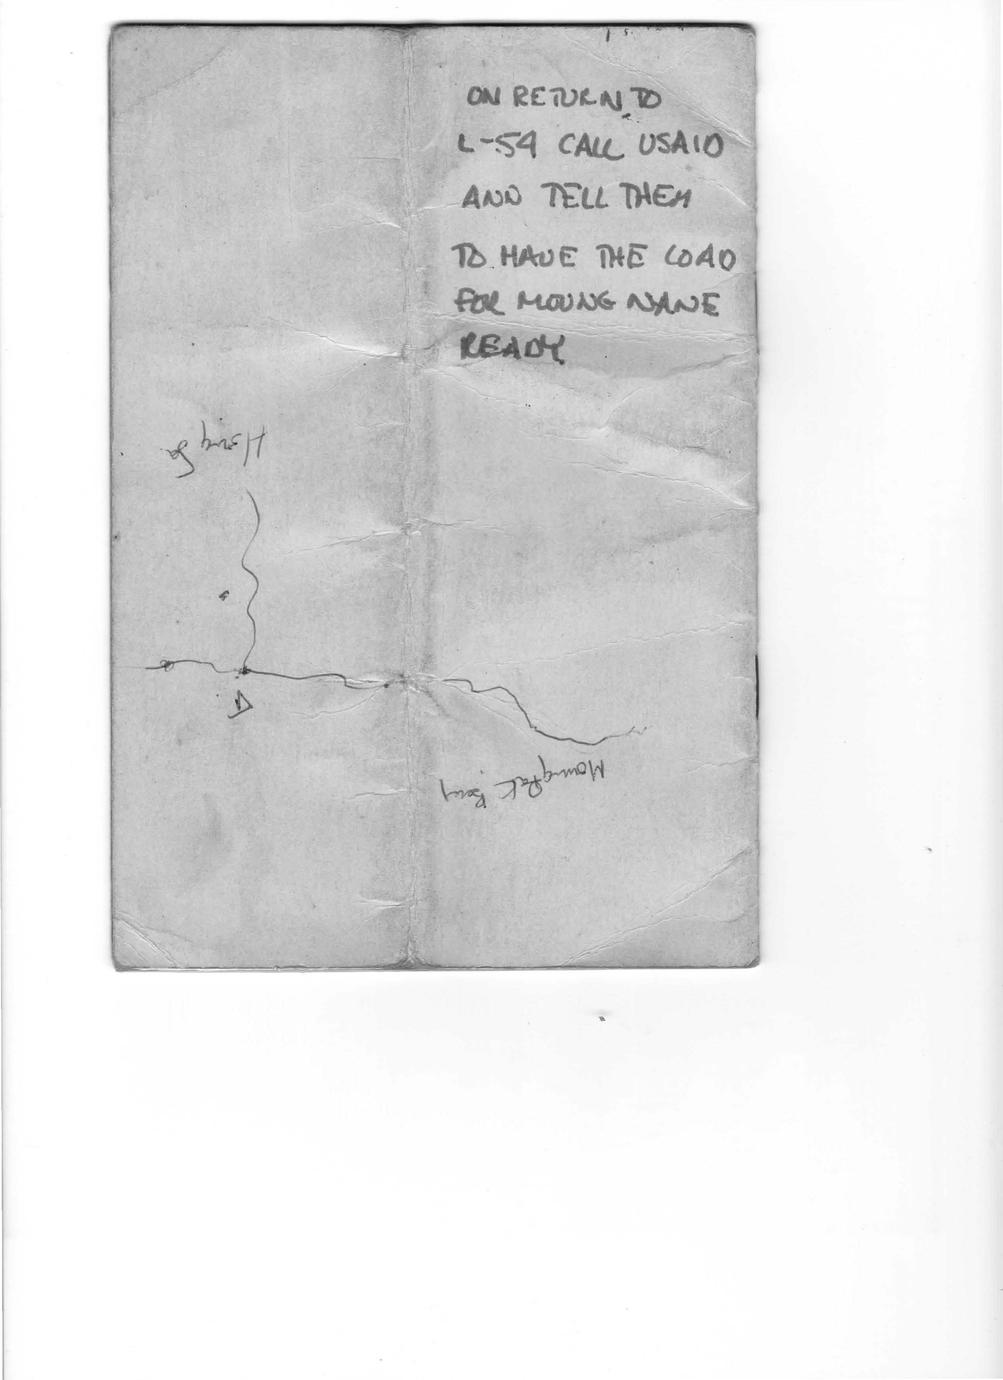 ON RETURN TO
L-54 CALL USAID
AND TELL THEM
TO HAVE THE LOAD
FOR MOUNG NANE
READY
Houng Sa
Moung Pak Beng